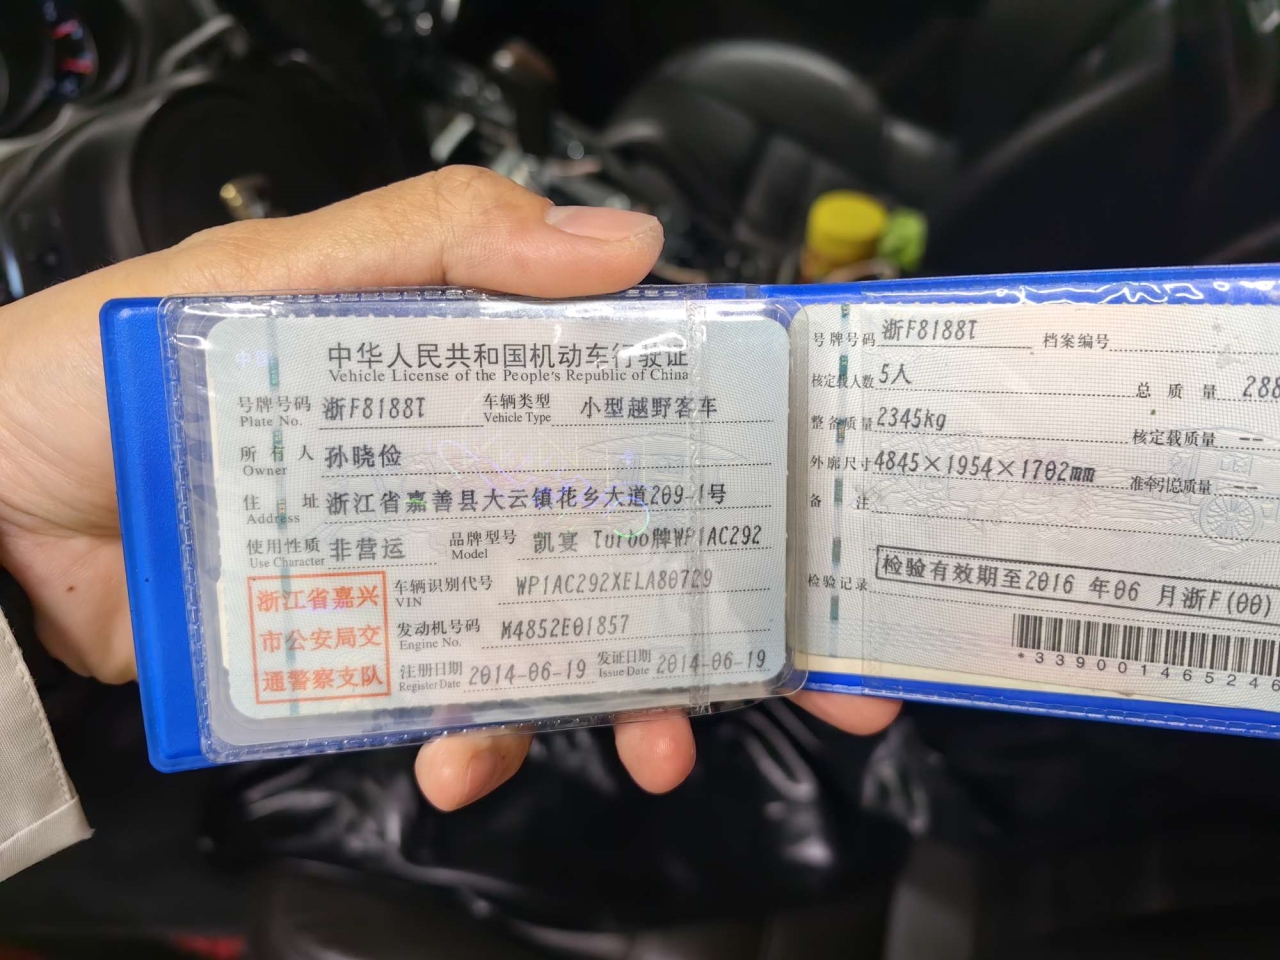 中华人民共和国机动车行驶证
Vehicle License of the People's Republic of China
号牌号码 浙F8188T 车辆类型 小型越野客车
Plate No. Vehicle Type
所有人 孙晓俭
Owner
住址 浙江省嘉善县大云镇花乡大道209-1号
Address
使用性质 非营运 品牌型号 凯宴 Turbo牌WP1AC292
Use Character Model
浙江省嘉兴
市公安局交
通警察支队
车辆识别代号 WP1AC292XELA80729
VIN
发动机号码 M4852E01857
Engine No.
注册日期 2014-06-19 发证日期 2014-06-19
Register Date Issue Date
号牌号码 浙F8188T 档案编号
核定载人数 5人 总质量 288
整备质量 2345kg 核定载质量 --
外廓尺寸 4845×1954×1702mm 准牵引总质量 --
备注
检验记录 检验有效期至2016 年06 月浙F(00)
*339001465246